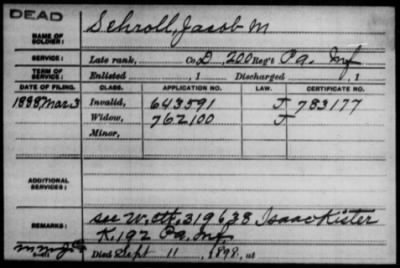 DEAD
NAME OF SOLDIER: Schroll, Jacob M
SERVICE: Late rank, Co. D, 200 Reg't Pa. Inf
TERM OF SERVICE: Enlisted , 1 Discharged , 1
DATE OF FILING. CLASS. APPLICATION NO. LAW. CERTIFICATE NO.
1888, Mar 3 Invalid, 643591 J 783177
Widow, 762100 J
Minor,
ADDITIONAL SERVICES:
REMARKS: see W. Ctf. 319638 Isaac Kister
K. 192 Pa. Inf
Died Sept 11, 1898, at